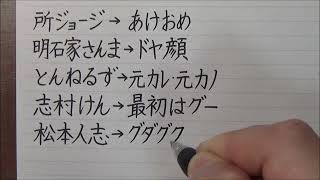 所ジョージ→あけおめ
明石家さんま→ドヤ顔
とんねるず→元カレ･元カノ
志村けん→最初はグー
松本人志→グダグク